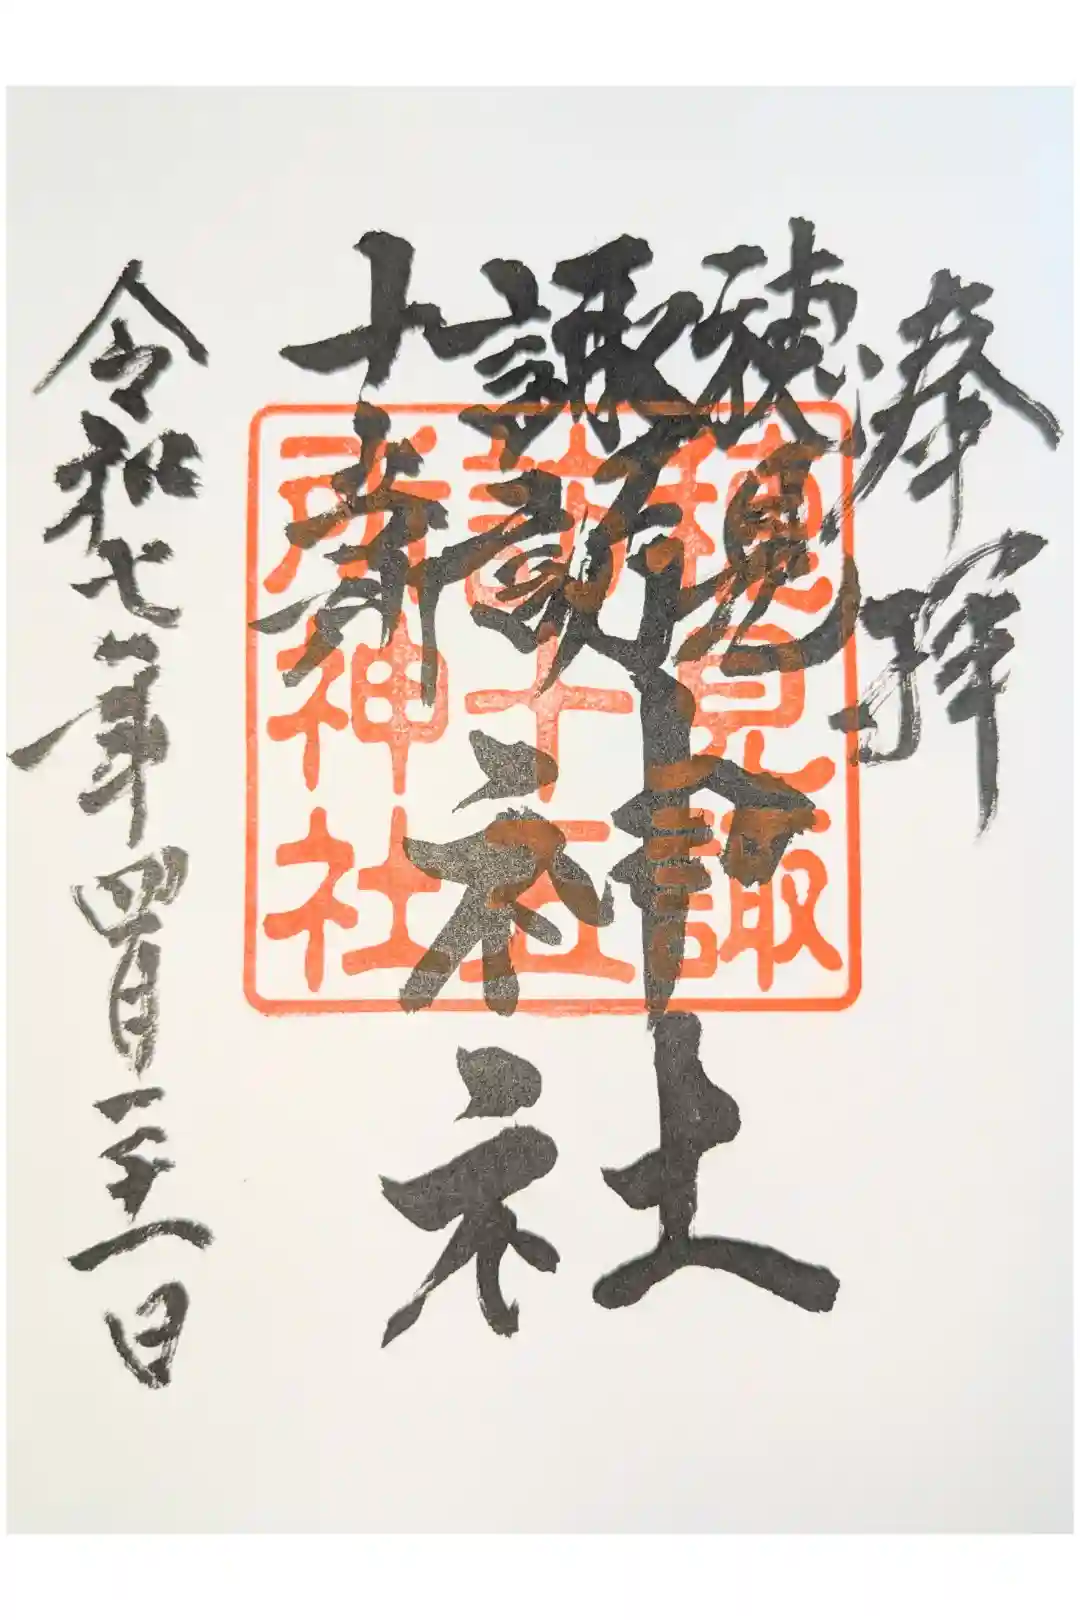 奉拝
穂見
諏訪
十五所
神社
令和七年四月二十一日
穂見諏
訪十五
所神社